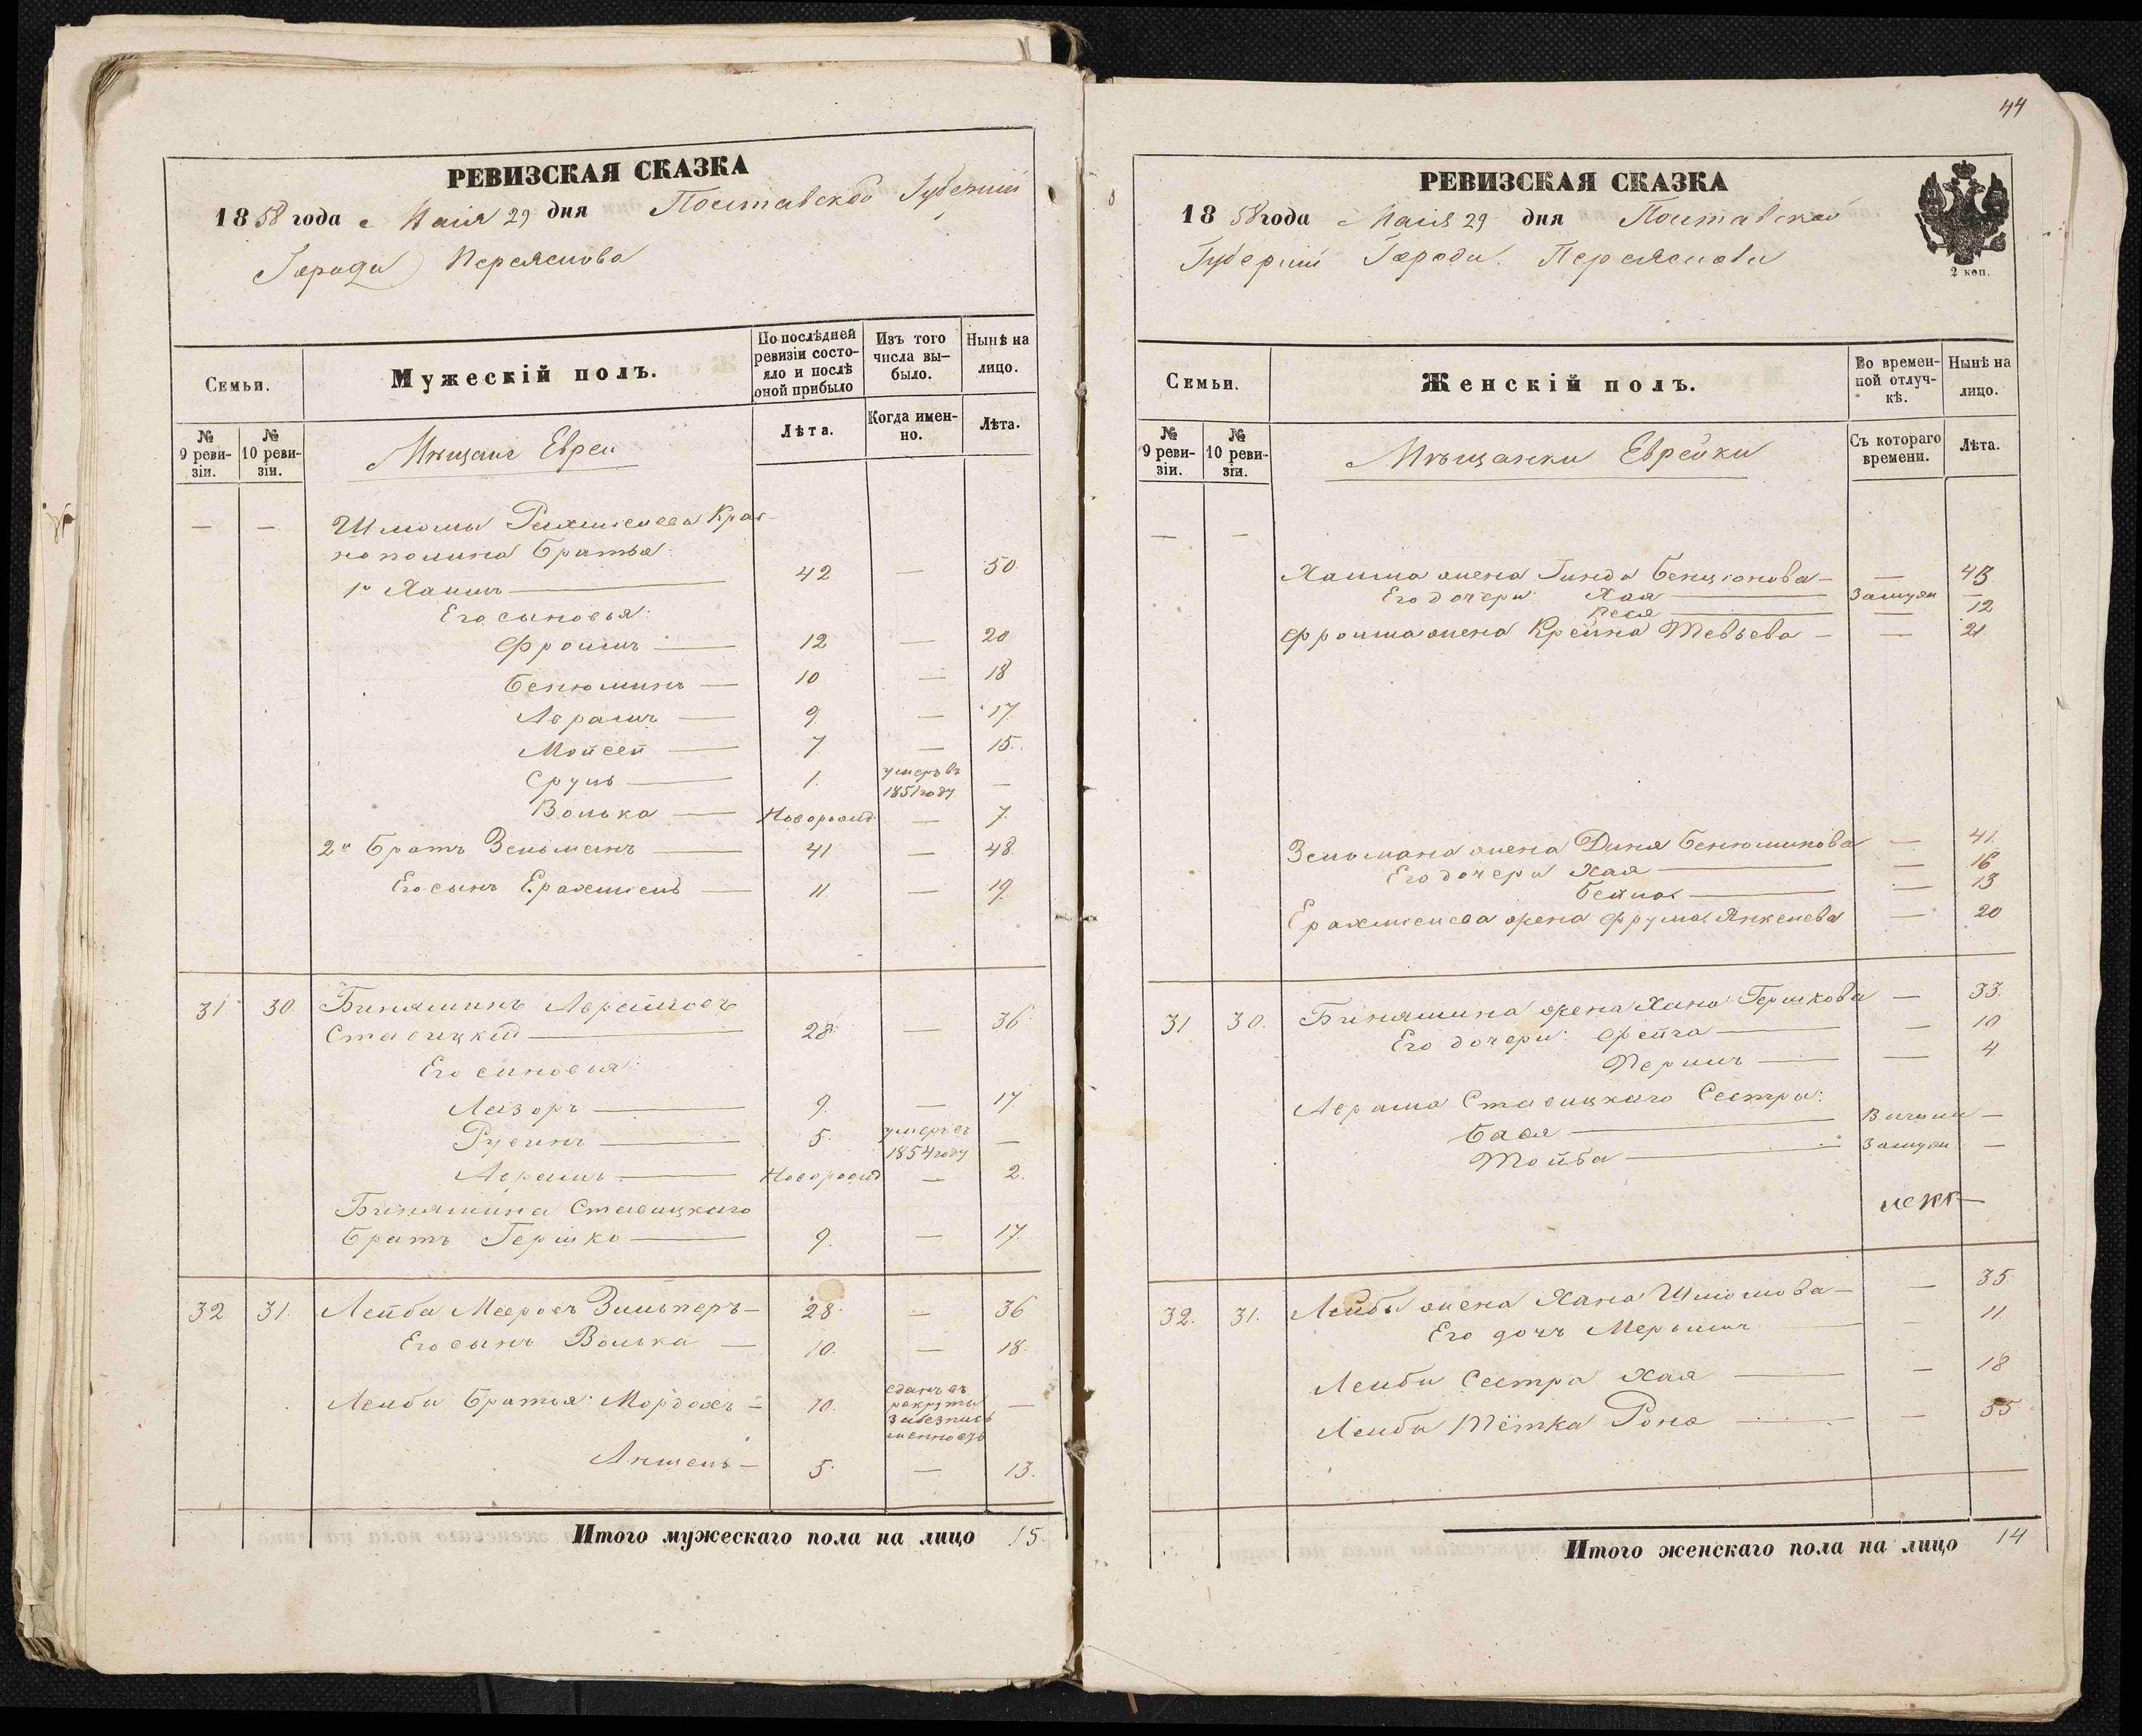 РЕВИЗСКАЯ СКАЗКА
1858 года Маія 29 дня Полтавской Губерніи
Города Переяслова
Семьи.
Мужескій полъ.
По послѣдней ревизіи состо-
яло и послѣ оной прибыло
Изъ того числа вы-
было.
Нынѣ на лицо.
№ 9 реви-
зіи.
№ 10 реви-
зіи.
Мѣщане Евреи
Лѣта.
Когда имен-
но.
Лѣта.
— — Шлiомы Рахмiелева Крас-
нополина братья:
1й Хаимъ — 42 — 50
Его сыновья:
Фроимъ — 12 — 20
Бенюминъ — 10 — 18
Аврамъ — 9 — 17
Мойсей — 7 — 15
Сруль — 1. умеръ въ 1851 году —
Волька — Новорожд. — 7.
2й братъ Зельманъ — 41 — 48
Его сынъ Ерахмiель — 11 — 19.
31 30 Биняминъ Аврамовъ
Ставицкій — 28 — 36
Его сыновья:
Лазоръ — 9. — 17
Рувинъ — 5. умеръ въ 1854 году —
Аврамъ — Новорожд. — 2.
Бинямина Ставицкаго
братъ Гершко — 9. — 17.
32 31. Лейба Мееровъ Зильперъ — 28 — 36
Его сынъ Волька — 10. — 18.
Лейбы братья: Мордохъ — 10. сданъ въ рекруты —
Аншель — 5. — 13.
Итого мужескаго пола на лицо 15.
44
РЕВИЗСКАЯ СКАЗКА
1858 года Маія 29 дня Полтавской
Губерніи Города Переяслова
2 коп.
Семьи.
Женскій полъ.
Во времен-
ной отлуч-
кѣ.
Нынѣ на лицо.
№ 9 реви-
зіи.
№ 10 реви-
зіи.
Мѣщанки Еврейки
Съ котораго времени.
Лѣта.
— — Хаима жена Гинда Бенцiонова — — 43
Его дочери: Хая — Замужи —
Песя — — 12
Фроима жена Крейна Тевьева — — 21
Зельмана жена Диня Бенюминова — 41.
Его дочери Хая — — 16
Бейла — — 13
Ерахмiелева жена Фрума Янкелева — 20
31 30. Бинямина жена Хана Гершкова — 33.
Его дочери: Фрейга — — 10
Перилъ — — 4.
Аврама Ставицкаго Сестры:
Бася — —
Тойба — Замужи —
32. 31. Лейбы жена Хана Шлiомова — — 35.
Его дочь Мерьимъ — — 11.
Лейбы Сестра Хая — — 18
Лейбы Тётка Рона — — 55
Итого женскаго пола на лицо 14